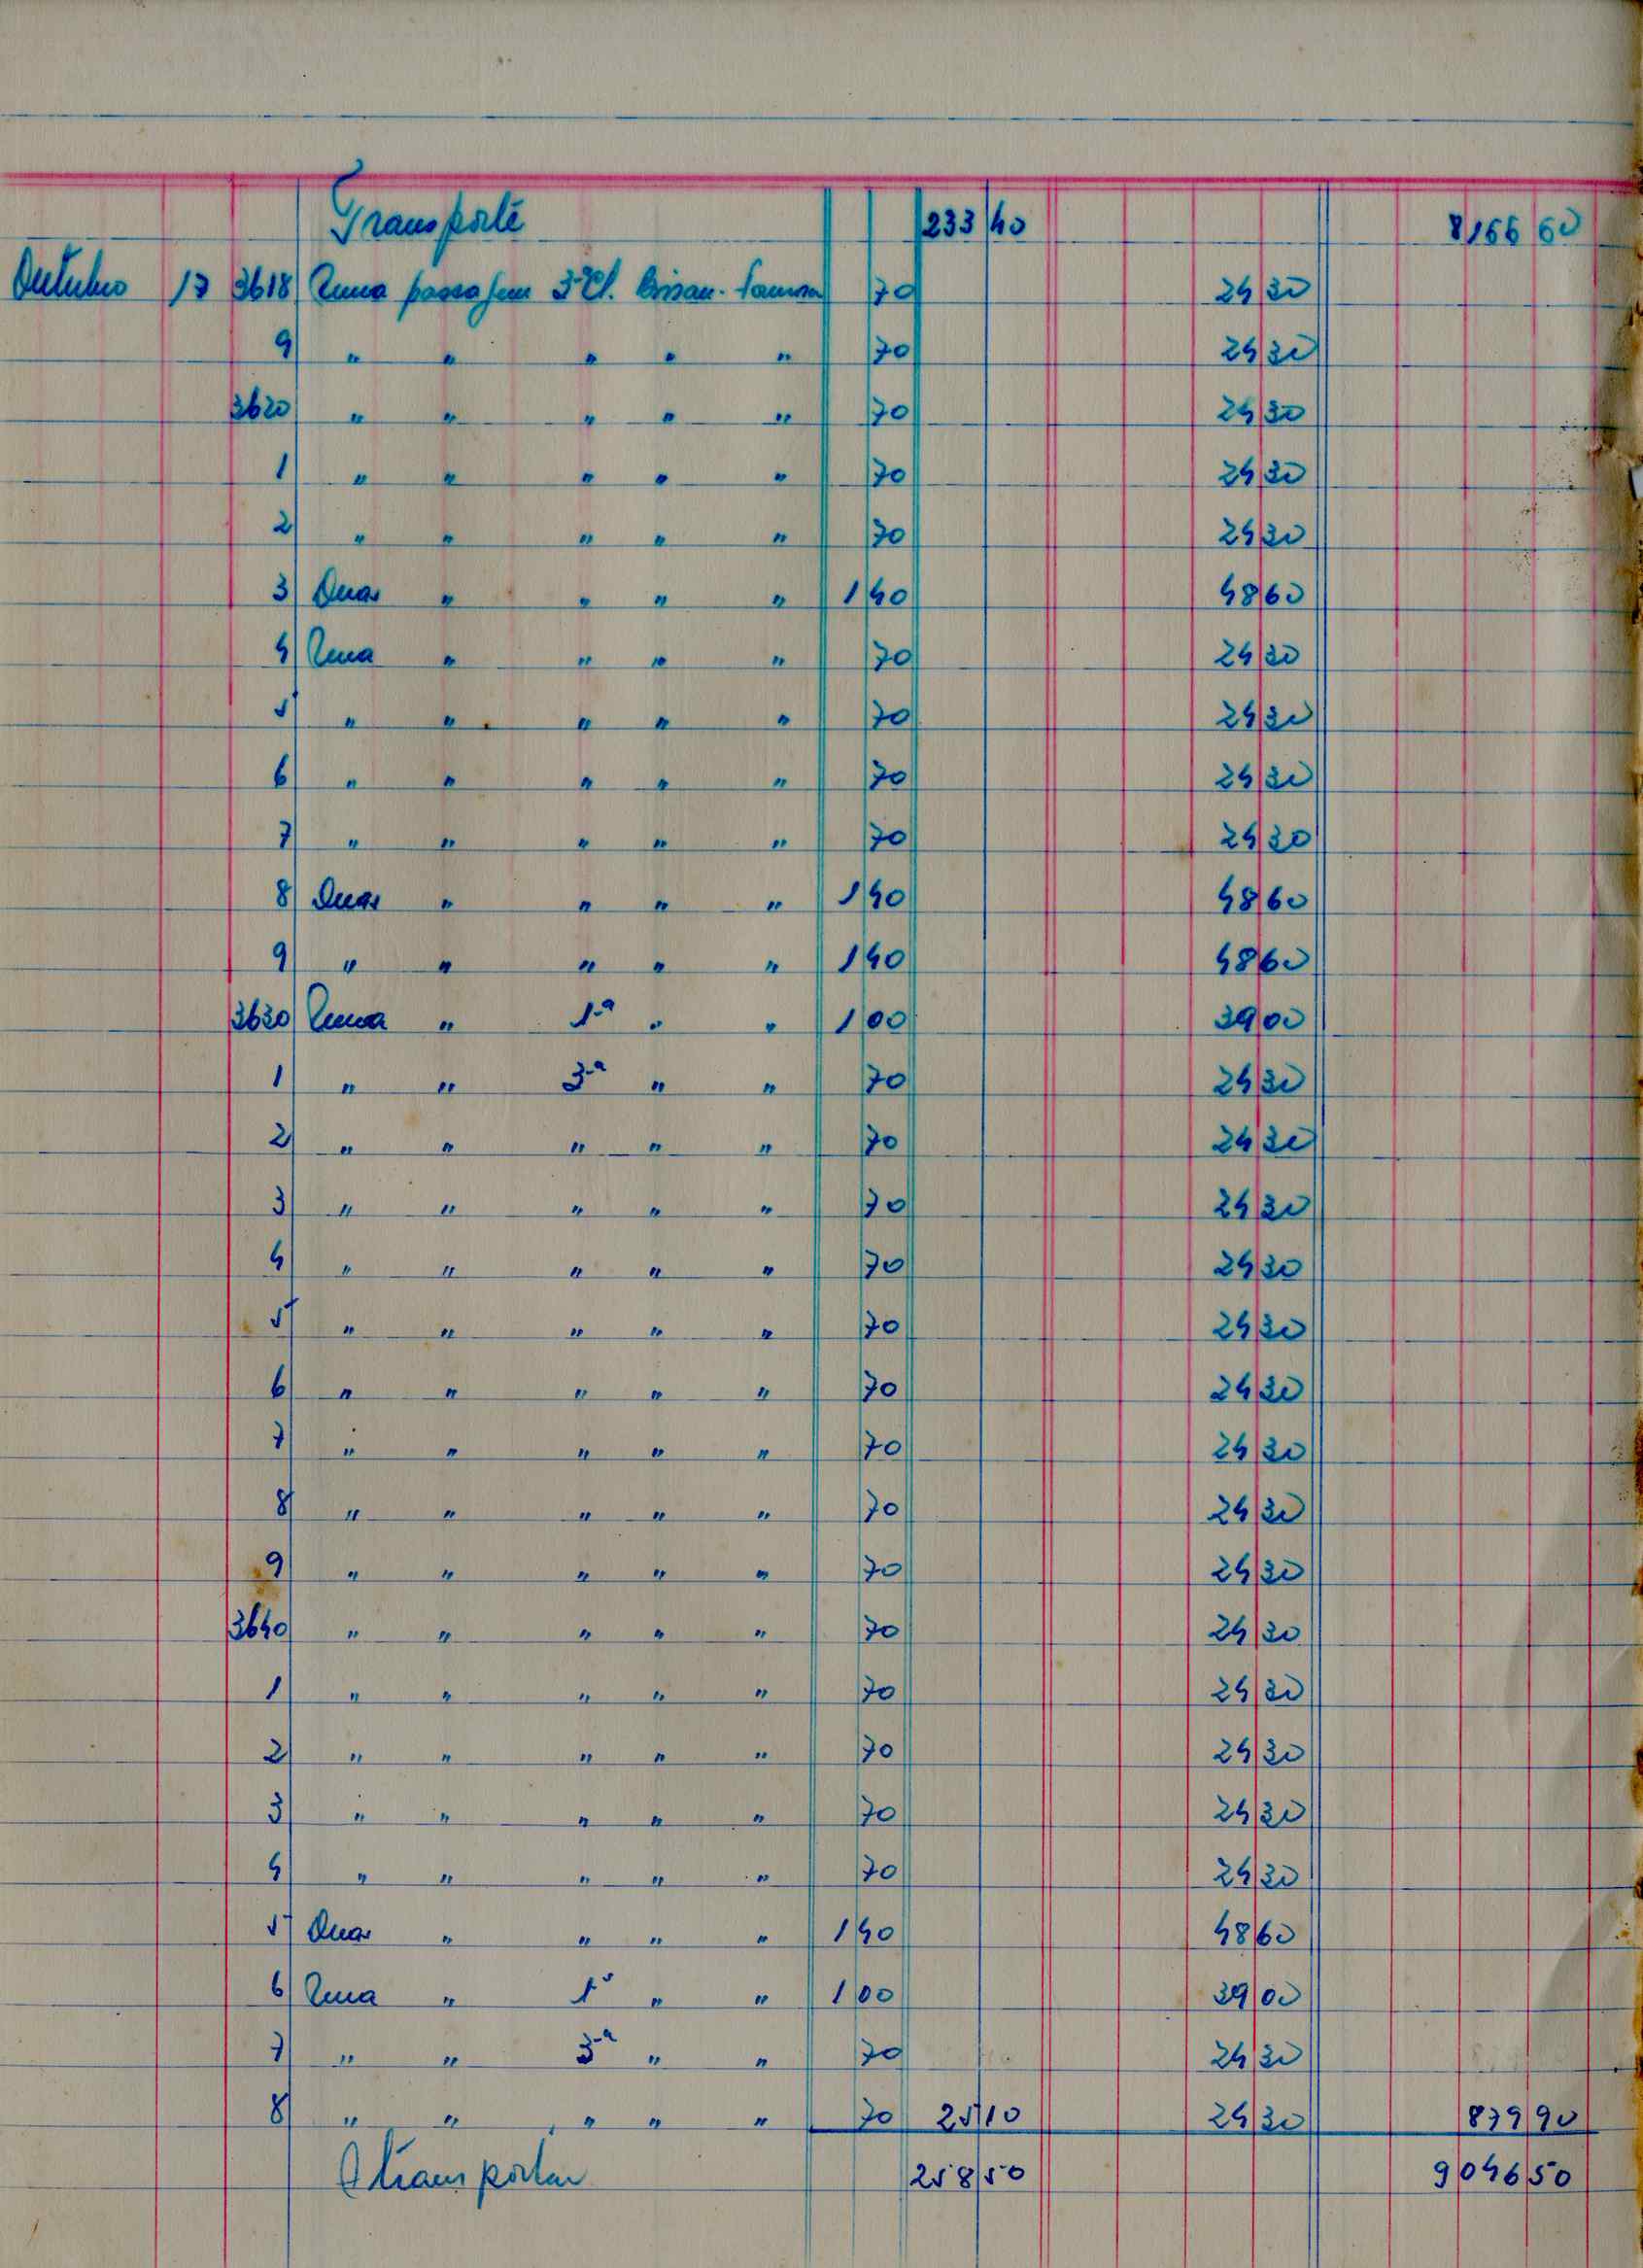 Transporte 233 40 8166 60
Outubro 17 3618 Uma passagem 3ª Cl. Bissau - 70 24 30
9 " " " " " 70 24 30
3620 " " " " " 70 24 30
1 " " " " " 70 24 30
2 " " " " " 70 24 30
3 Duas " " " " 1 40 48 60
4 Uma " " " " 70 24 30
5 " " " " " 70 24 30
6 " " " " " 70 24 30
7 " " " " " 70 24 30
8 Duas " " " " 1 40 48 60
9 " " " " " 1 40 48 60
3630 Uma " 1ª " " 1 00 39 00
1 " " 3ª " " 70 24 30
2 " " " " " 70 24 30
3 " " " " " 70 24 30
4 " " " " " 70 24 30
5 " " " " " 70 24 30
6 " " " " " 70 24 30
7 " " " " " 70 24 30
8 " " " " " 70 24 30
9 " " " " " 70 24 30
3640 " " " " " 70 24 30
1 " " " " " 70 24 30
2 " " " " " 70 24 30
3 " " " " " 70 24 30
4 " " " " " 70 24 30
5 Duas " " " " 1 40 48 60
6 Uma " 1ª " " 1 00 39 00
7 " " 3ª " " 70 24 30
8 " " " " " 70 25 10 24 30 879 90
A transportar 258 50 9046 50